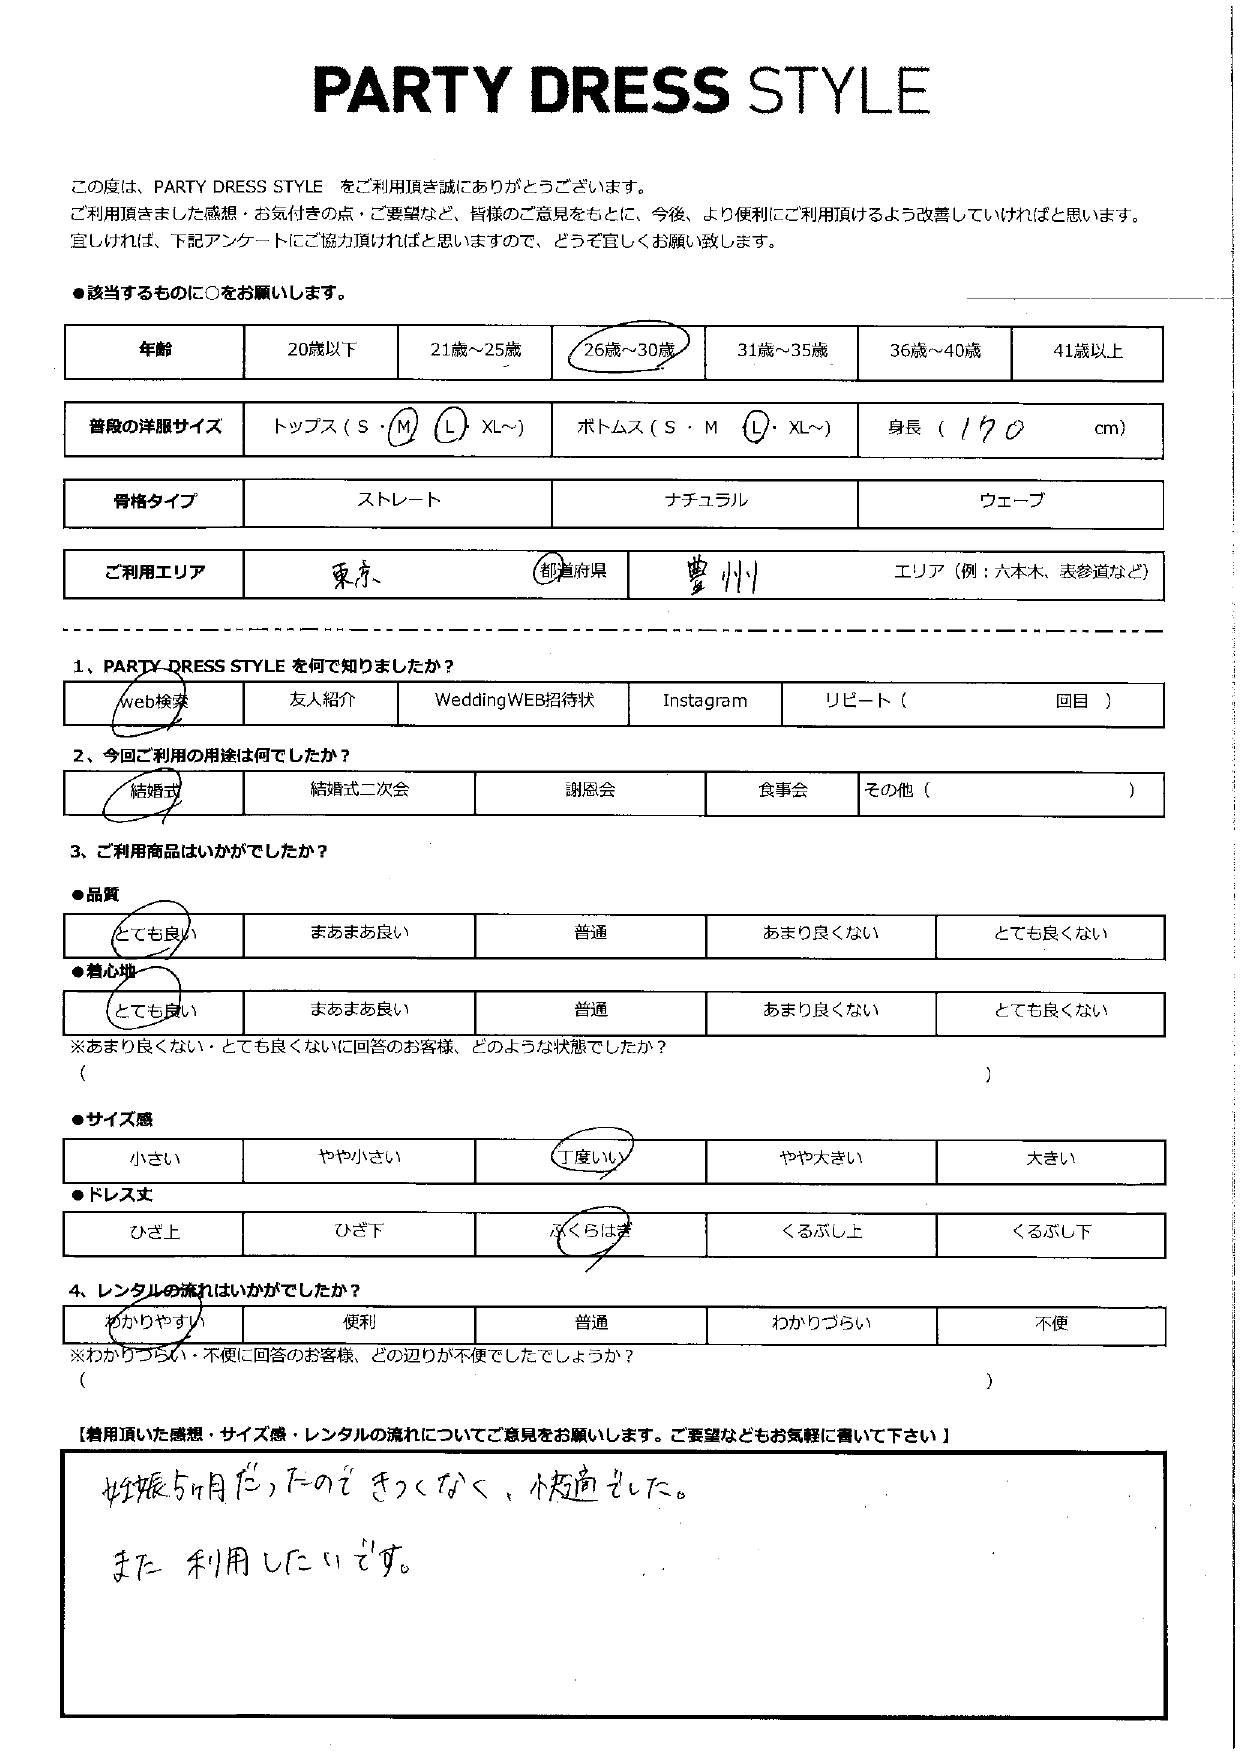 PARTY DRESS STYLE
この度は、PARTY DRESS STYLE をご利用頂き誠にありがとうございます。
ご利用頂きました感想・お気付きの点・ご要望など、皆様のご意見をもとに、今後、より便利にご利用頂けるよう改善していければと思います。
宜しければ、下記アンケートにご協力頂ければと思いますので、どうぞ宜しくお願い致します。
●該当するものに○をお願いします。
年齢 20歳以下 21歳～25歳 26歳～30歳 31歳～35歳 36歳～40歳 41歳以上
普段の洋服サイズ トップス ( S ・ M L ・ XL～) ボトムス ( S ・ M L ・ XL～) 身長 ( 170 cm)
骨格タイプ ストレート ナチュラル ウェーブ
ご利用エリア 東京 都道府県 豊州 エリア（例：六本木、表参道など）
1、PARTY DRESS STYLE を何で知りましたか？
web検索 友人紹介 WeddingWEB招待状 Instagram リピート（ 回目 ）
2、今回ご利用の用途は何でしたか？
結婚式 結婚式二次会 謝恩会 食事会 その他（ ）
3、ご利用商品はいかがでしたか？
●品質
とても良い まあまあ良い 普通 あまり良くない とても良くない
●着心地
とても良い まあまあ良い 普通 あまり良くない とても良くない
※あまり良くない・とても良くないに回答のお客様、どのような状態でしたか？
（ ）
●サイズ感
小さい やや小さい 丁度いい やや大きい 大きい
●ドレス丈
ひざ上 ひざ下 ふくらはぎ くるぶし上 くるぶし下
4、レンタルの流れはいかがでしたか？
わかりやすい 便利 普通 わかりづらい 不便
※わかりづらい・不便に回答のお客様、どの辺りが不便でしたでしょうか？
（ ）
【着用頂いた感想・サイズ感・レンタルの流れについてご意見をお願いします。ご要望などもお気軽に書いて下さい 】
妊娠5ヶ月だったので きつくなく、快適でした。
また 利用したいです。